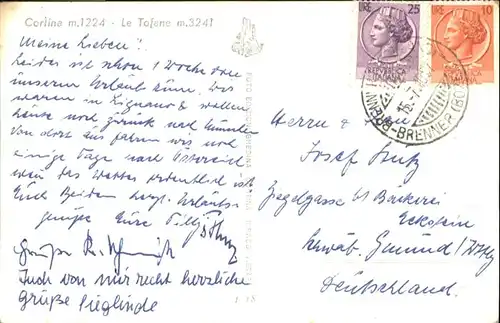 Cortina m.1224 - Le Tofane m.3241
Meine Lieben!
Leider ist schon 1 Woche von
unserem Urlaub um. Wir
waren in Lignano & wollen
heute noch zurück nach
Von dort aus fahren wir noch
einige Tage nach Österreich
wenn das Wetter ordentlich ist.
Euch Beiden herzl. Urlaubs-
grüße Eure Tilly
Grüße
Auch von mir recht herzliche
grüße Sieglinde
25
10
BRENNERO-BRENNER (BO)
Herrn &
Josef
Ziegelgasse b/ Bäckerei
Eckstein
Schwäb. Gmünd/Wttbg
Deutschland.